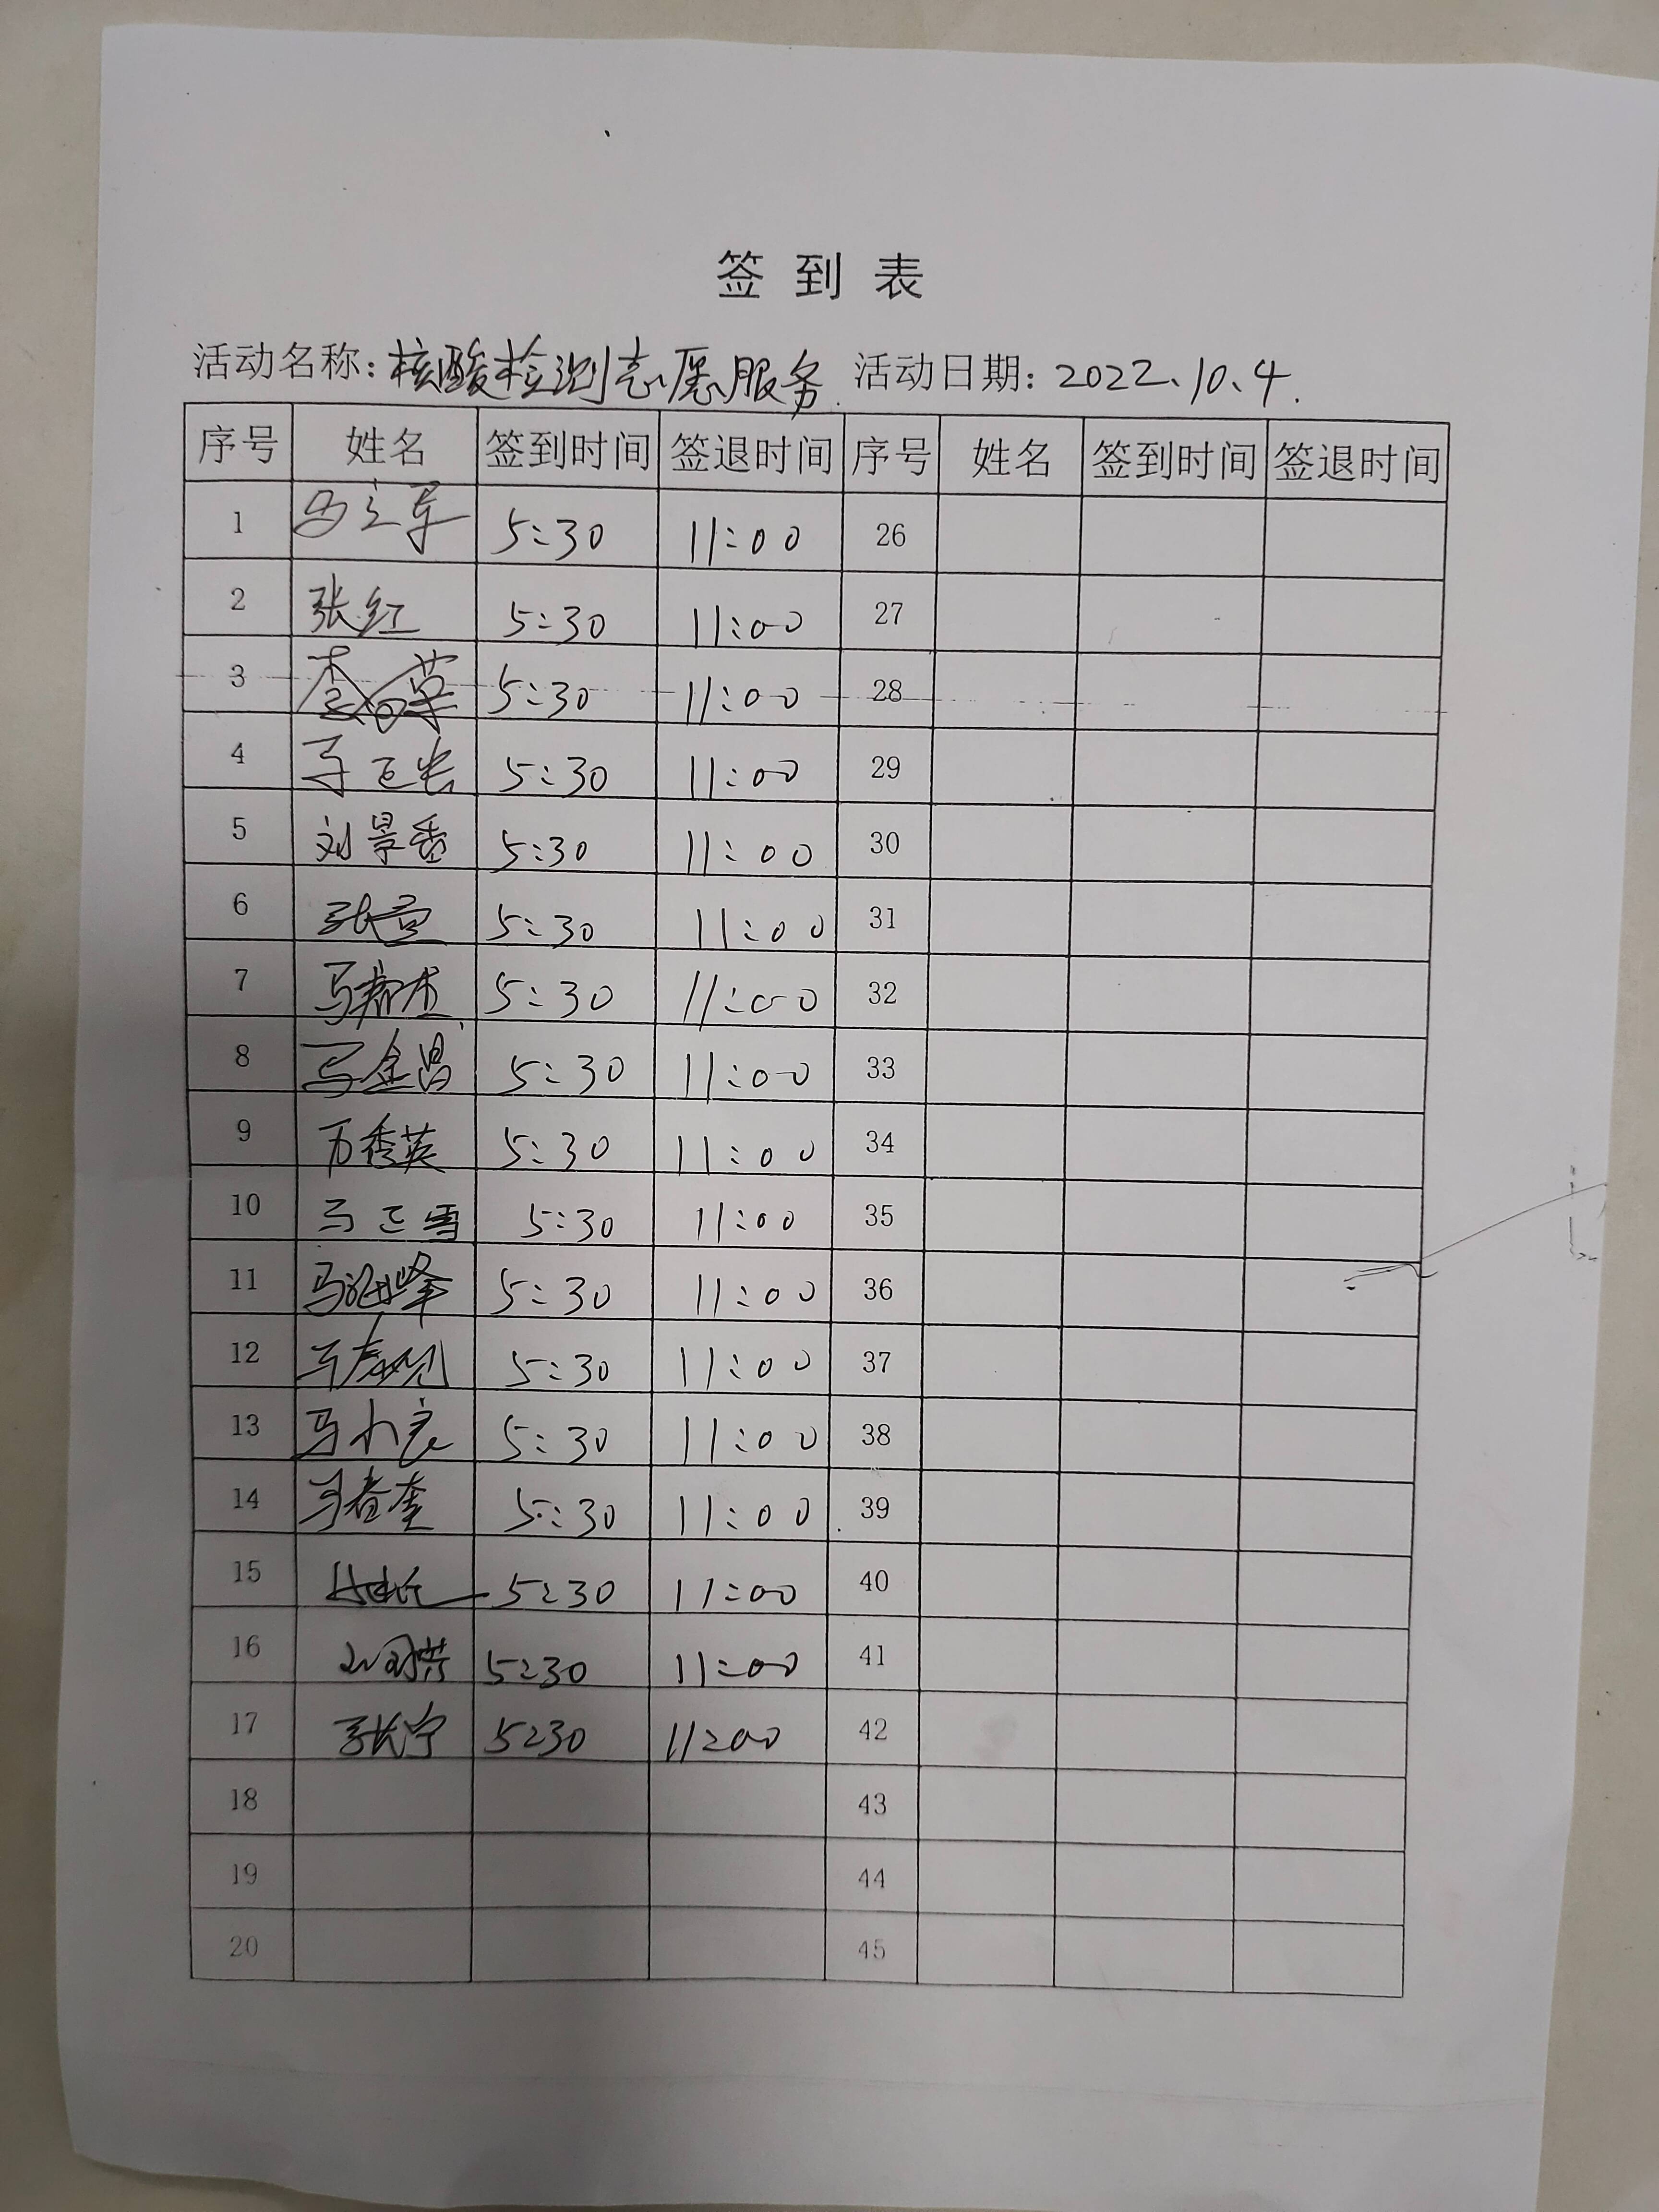 签到表
活动名称:核酸检测志愿服务 活动日期:2022.10.4.
序号 姓名 签到时间 签退时间 序号 姓名 签到时间 签退时间
1 5:30 11:00 26
2 张红 5:30 11:00 27
3 5:30 11:00 28
4 5:30 11:00 29
5 刘景香 5:30 11:00 30
6 5:30 11:00 31
7 5:30 11:00 32
8 马金昌 5:30 11:00 33
9 万秀英 5:30 11:00 34
10 马正雪 5:30 11:00 35
11 5:30 11:00 36
12 5:30 11:00 37
13 马小良 5:30 11:00 38
14 马春奎 5:30 11:00 39
15 5:30 11:00 40
16 5:30 11:00 41
17 张宁 5:30 11:00 42
18 43
19 44
20 45